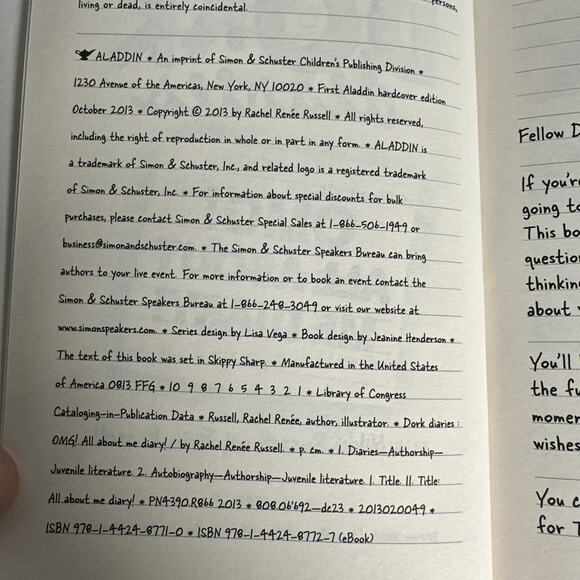 persons,
living or dead, is entirely coincidental.
ALADDIN * An imprint of Simon & Schuster Children's Publishing Division *
1230 Avenue of the Americas, New York, NY 10020 * First Aladdin hardcover edition
October 2013 * Copyright © 2013 by Rachel Renée Russell * All rights reserved,
including the right of reproduction in whole or in part in any form. * ALADDIN is
a trademark of Simon & Schuster, Inc., and related logo is a registered trademark
of Simon & Schuster, Inc. * For information about special discounts for bulk
purchases, please contact Simon & Schuster Special Sales at 1-866-506-1949 or
business@simonandschuster.com. * The Simon & Schuster Speakers Bureau can bring
authors to your live event. For more information or to book an event contact the
Simon & Schuster Speakers Bureau at 1-866-248-3049 or visit our website at
www.simonspeakers.com. * Series design by Lisa Vega * Book design by Jeanine Henderson *
The text of this book was set in Skippy Sharp. * Manufactured in the United States
of America 0813 FFG * 10 9 8 7 6 5 4 3 2 1 * Library of Congress
Cataloging-in-Publication Data * Russell, Rachel Renée, author, illustrator. * Dork diaries :
OMG! All about me diary! / by Rachel Renée Russell. * p. cm. * 1. Diaries—Authorship—
Juvenile literature. 2. Autobiography—Authorship—Juvenile literature. I. Title. II. Title:
All about me diary! * PN4390.R866 2013 * 808.06'692—dc23 * 2013020049 *
ISBN 978-1-4424-8771-0 * ISBN 978-1-4424-8772-7 (eBook)
Fellow D
If you're
going to
This bo
question
thinking
about
You'll
the fu
momen
wishes
You c
for T